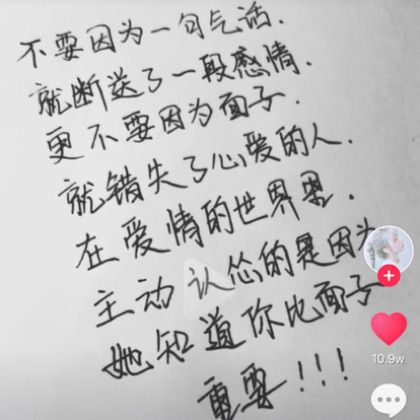 不要因为一句气话.
就断送了一段感情.
更不要因为面子.
就错失了心爱的人.
在爱情的世界里.
主动认怂的是因为
她知道你比面子
重要!!!
10.9w